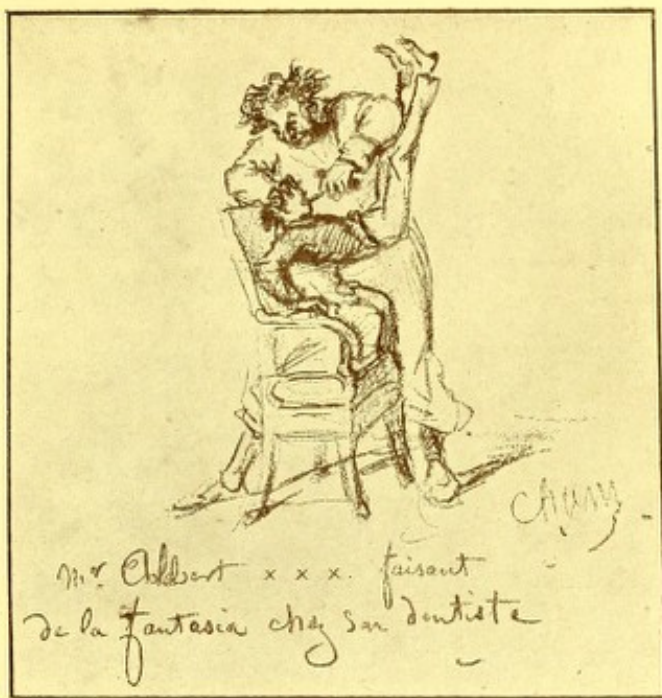 Cham
Mr. Albert x x x. faisant
de la fantasia chez son dentiste